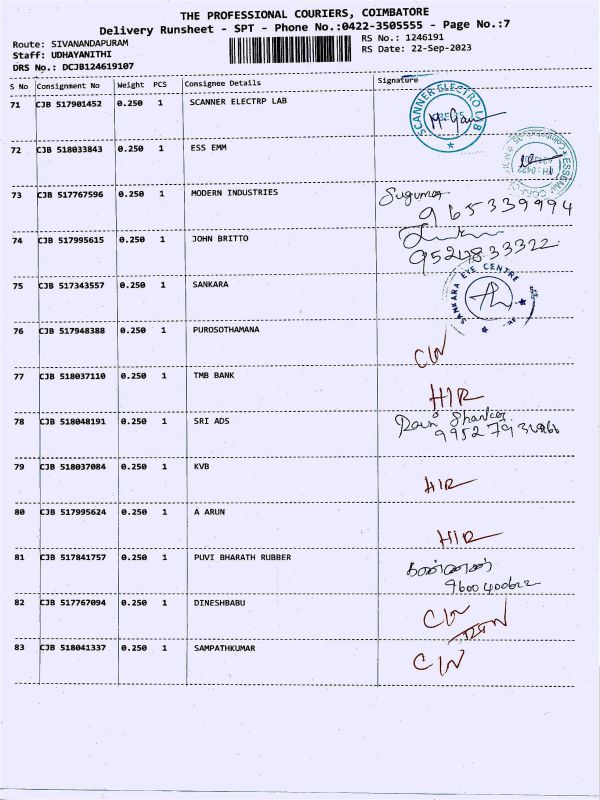 THE PROFESSIONAL COURIERS, COIMBATORE
Delivery Runsheet - SPT - Phone No.:0422-3505555 - Page No.:7
Route: SIVANANDAPURAM
RS No.: 1246191
Staff: UDHAYANITHI
RS Date: 22-Sep-2023
DRS No.: DCJB124619107
S No Consignment No Weight PCS Consignee Details Signature
71 CJB 517901452 0.250 1 SCANNER ELECTRP LAB
SCANNER ELECTRO LAB
72 CJB 518033843 0.250 1 ESS EMM
73 CJB 517767596 0.250 1 MODERN INDUSTRIES Sugumar
965339994
74 CJB 517995615 0.250 1 JOHN BRITTO
9524833322
75 CJB 517343557 0.250 1 SANKARA
SANKARA EYE CENTRE
76 CJB 517948388 0.250 1 PUROSOTHAMANA
CW
77 CJB 518037110 0.250 1 TMB BANK
HIR
78 CJB 518048191 0.250 1 SRI ADS
Shanker
79 CJB 518037084 0.250 1 KVB
HIR
80 CJB 517995624 0.250 1 A ARUN
HIR
81 CJB 517841757 0.250 1 PUVI BHARATH RUBBER
9600400622
82 CJB 517767094 0.250 1 DINESHBABU CW
83 CJB 518041337 0.250 1 SAMPATHKUMAR CW